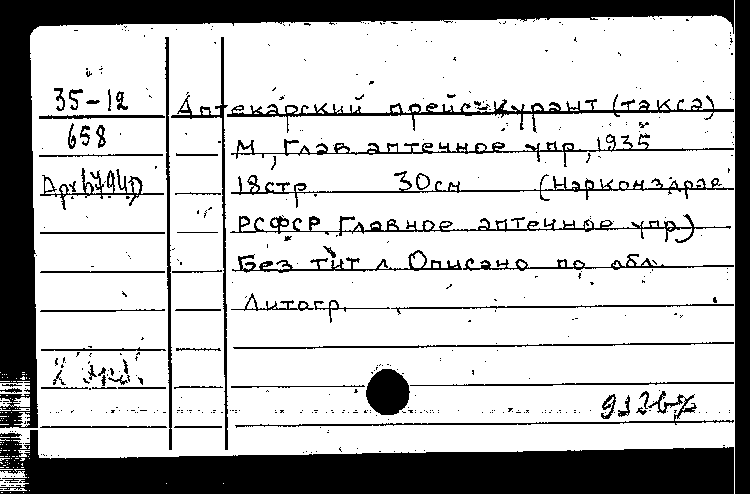 35-12 Аптекарский прейс-курант (такса)
658 М., Глав. аптечное упр., 1935
18 стр. 30 см (Наркомздрав
РСФСР. Главное аптечное упр.)
Без тит. л. Описано по обл.
Литогр.
2 экз.